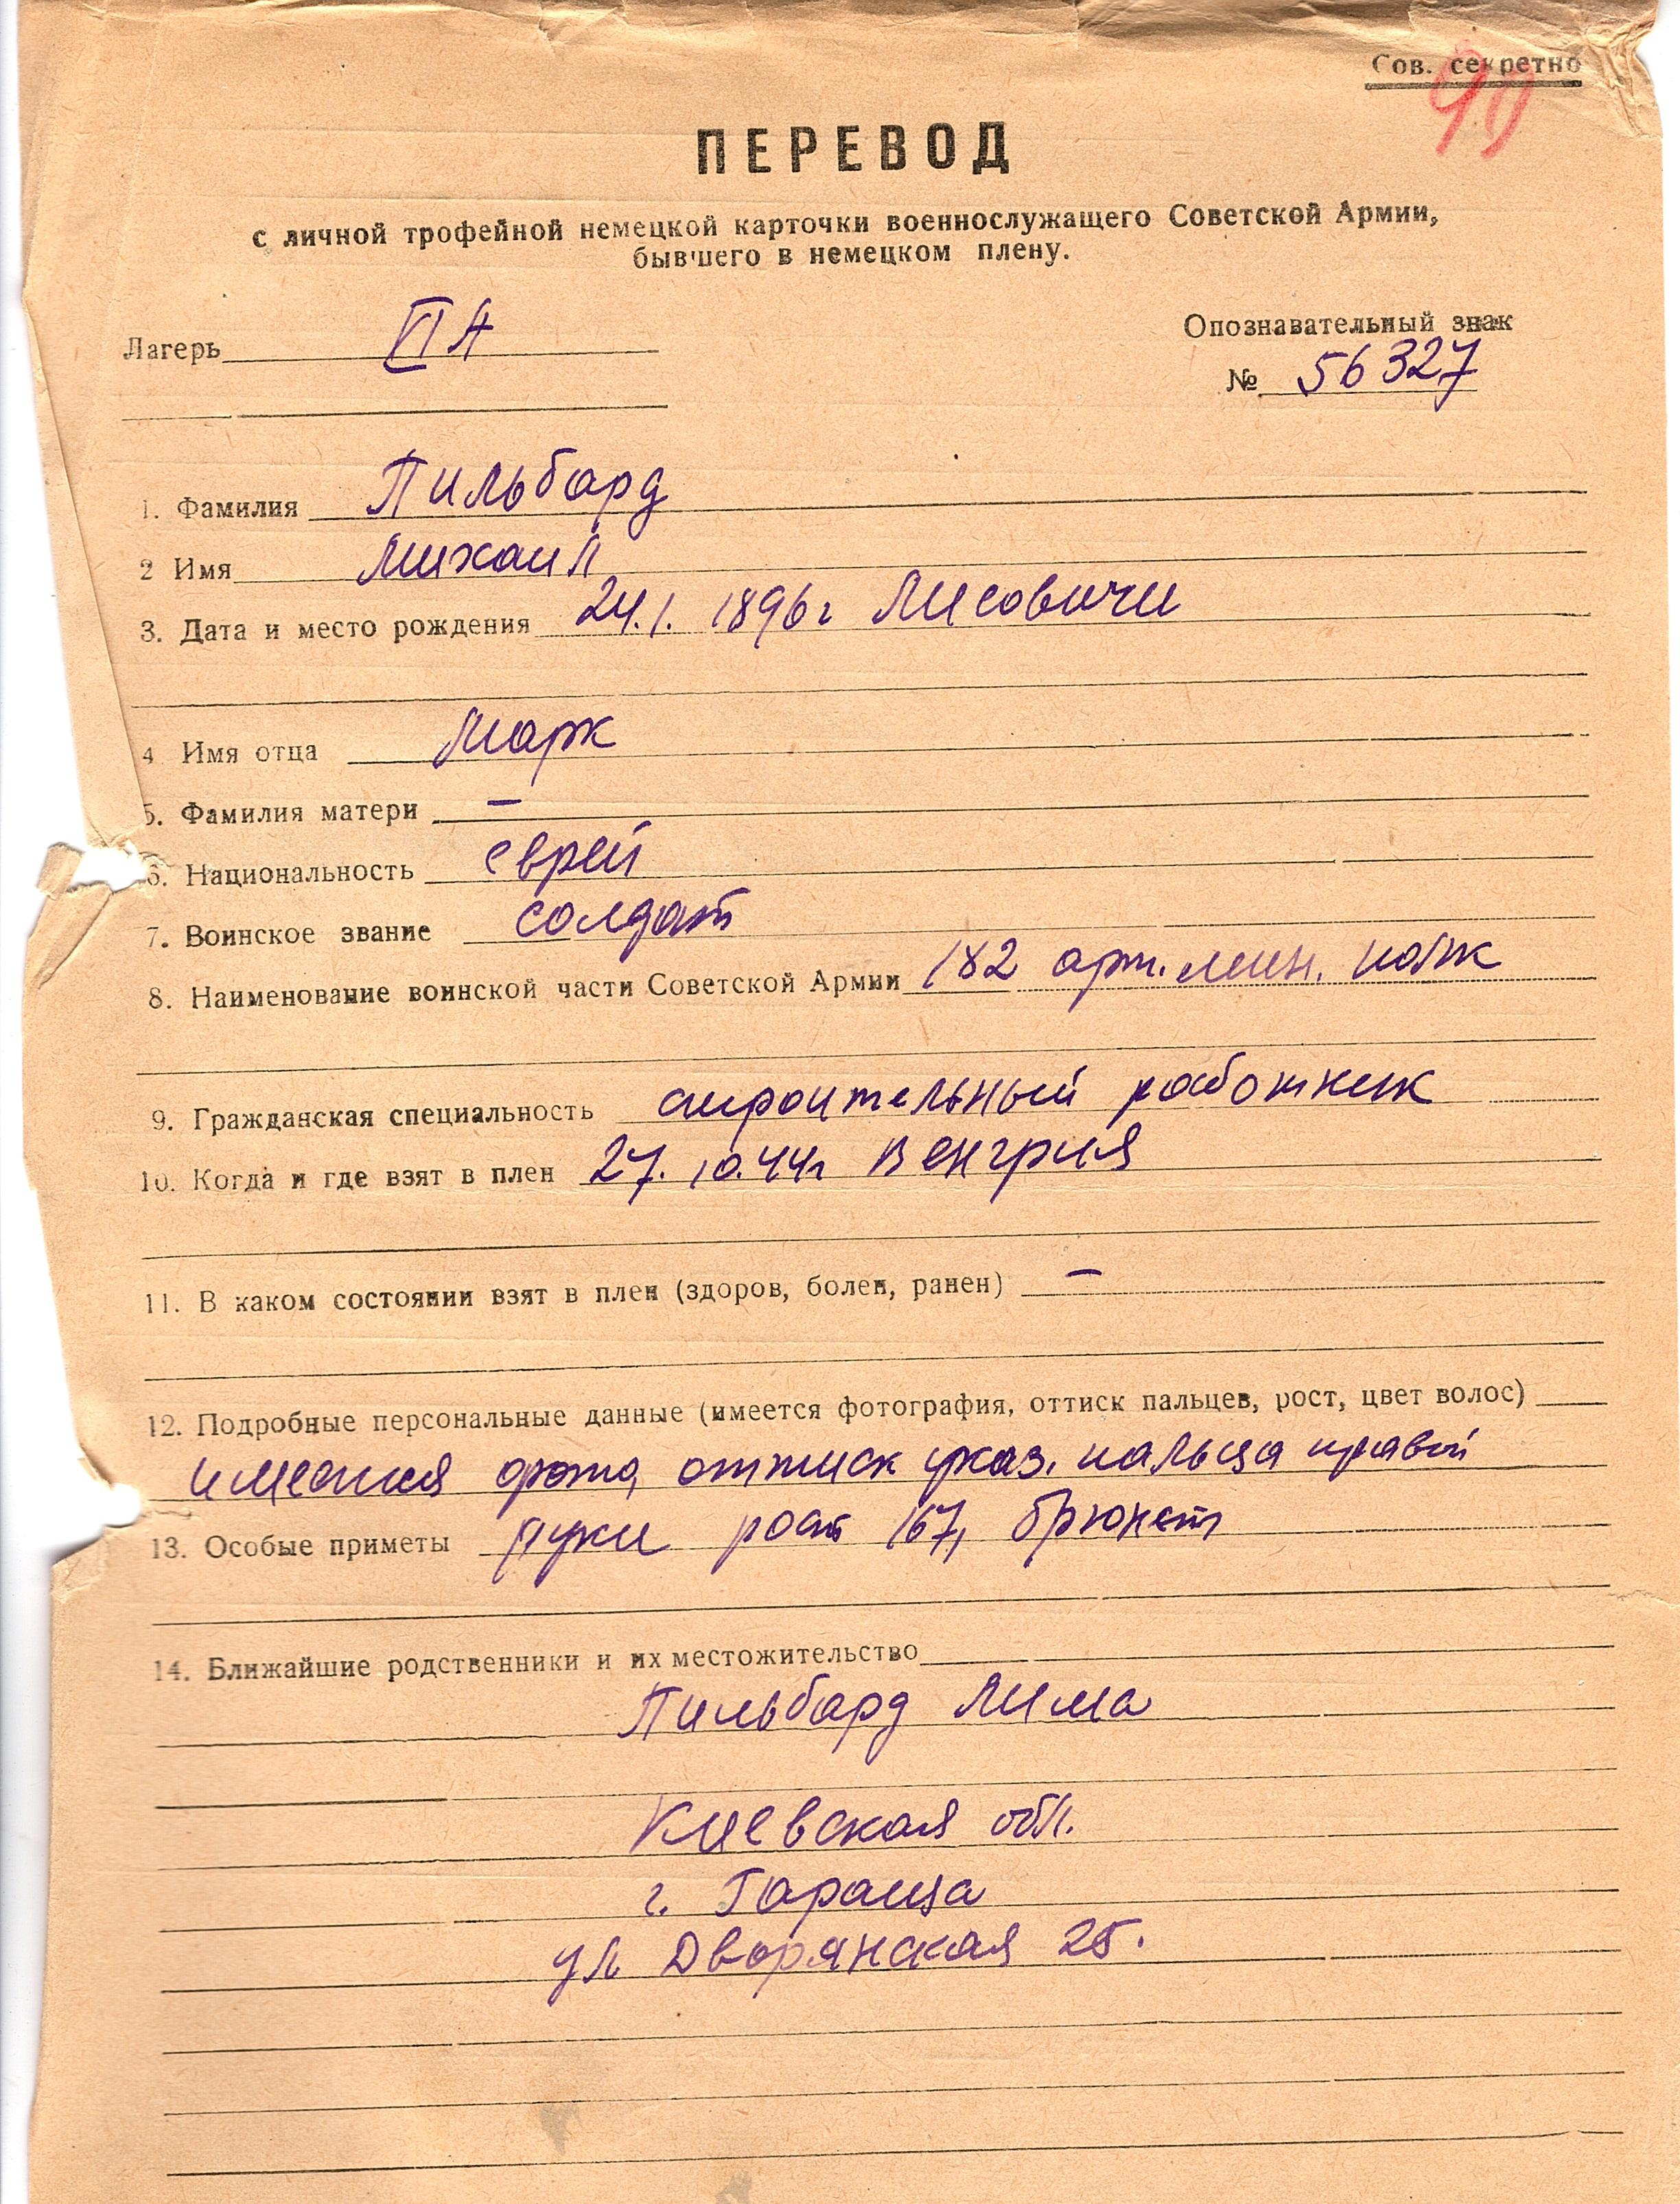 Сов. секретно
90
ПЕРЕВОД
с личной трофейной немецкой карточки военнослужащего Советской Армии,
бывшего в немецком плену.
Лагерь VIA
Опознавательный знак
№ 56327
1. Фамилия Пильбард
2 Имя Михаил
3. Дата и место рождения 24.1. 1896г Лисовичи
4 Имя отца Марк
5. Фамилия матери –
6. Национальность еврей
7. Воинское звание солдат
8. Наименование воинской части Советской Армии 182 арт. мин. полк
9. Гражданская специальность строительный работник
10. Когда и где взят в плен 27.10.44г Венгрия
11. В каком состоянии взят в плен (здоров, болен, ранен) –
12. Подробные персональные данные (имеется фотография, оттиск пальцев, рост, цвет волос)
имеется фото, оттиск указ. пальца правой
13. Особые приметы руки рост 167, брюнет
14. Ближайшие родственники и их местожительство
Пильбард Лима
Киевская обл.
г. Тараща
ул Дворянская 25.